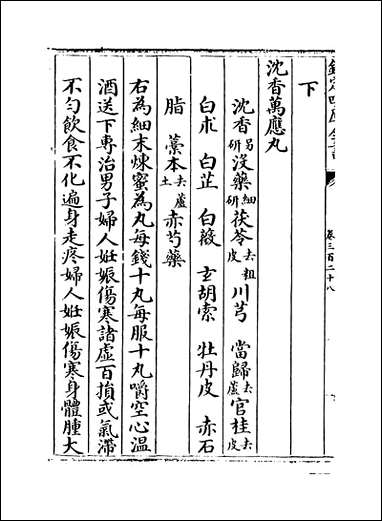 欽定四庫全書
卷三百二十八
下
沈香萬應丸
沈香另研沒藥細研茯苓去粗皮川芎 當歸去蘆官桂去皮
白朮 白芷 白薇 玄胡索 牡丹皮 赤石
脂 藁本去蘆土赤芍藥
右為細末煉蜜為丸每錢十丸每服十丸嚼空心溫
酒送下專治男子婦人姙娠傷寒諸虛百損或氣滯
不勻飲食不化遍身走疼婦人姙娠傷寒身體腫大